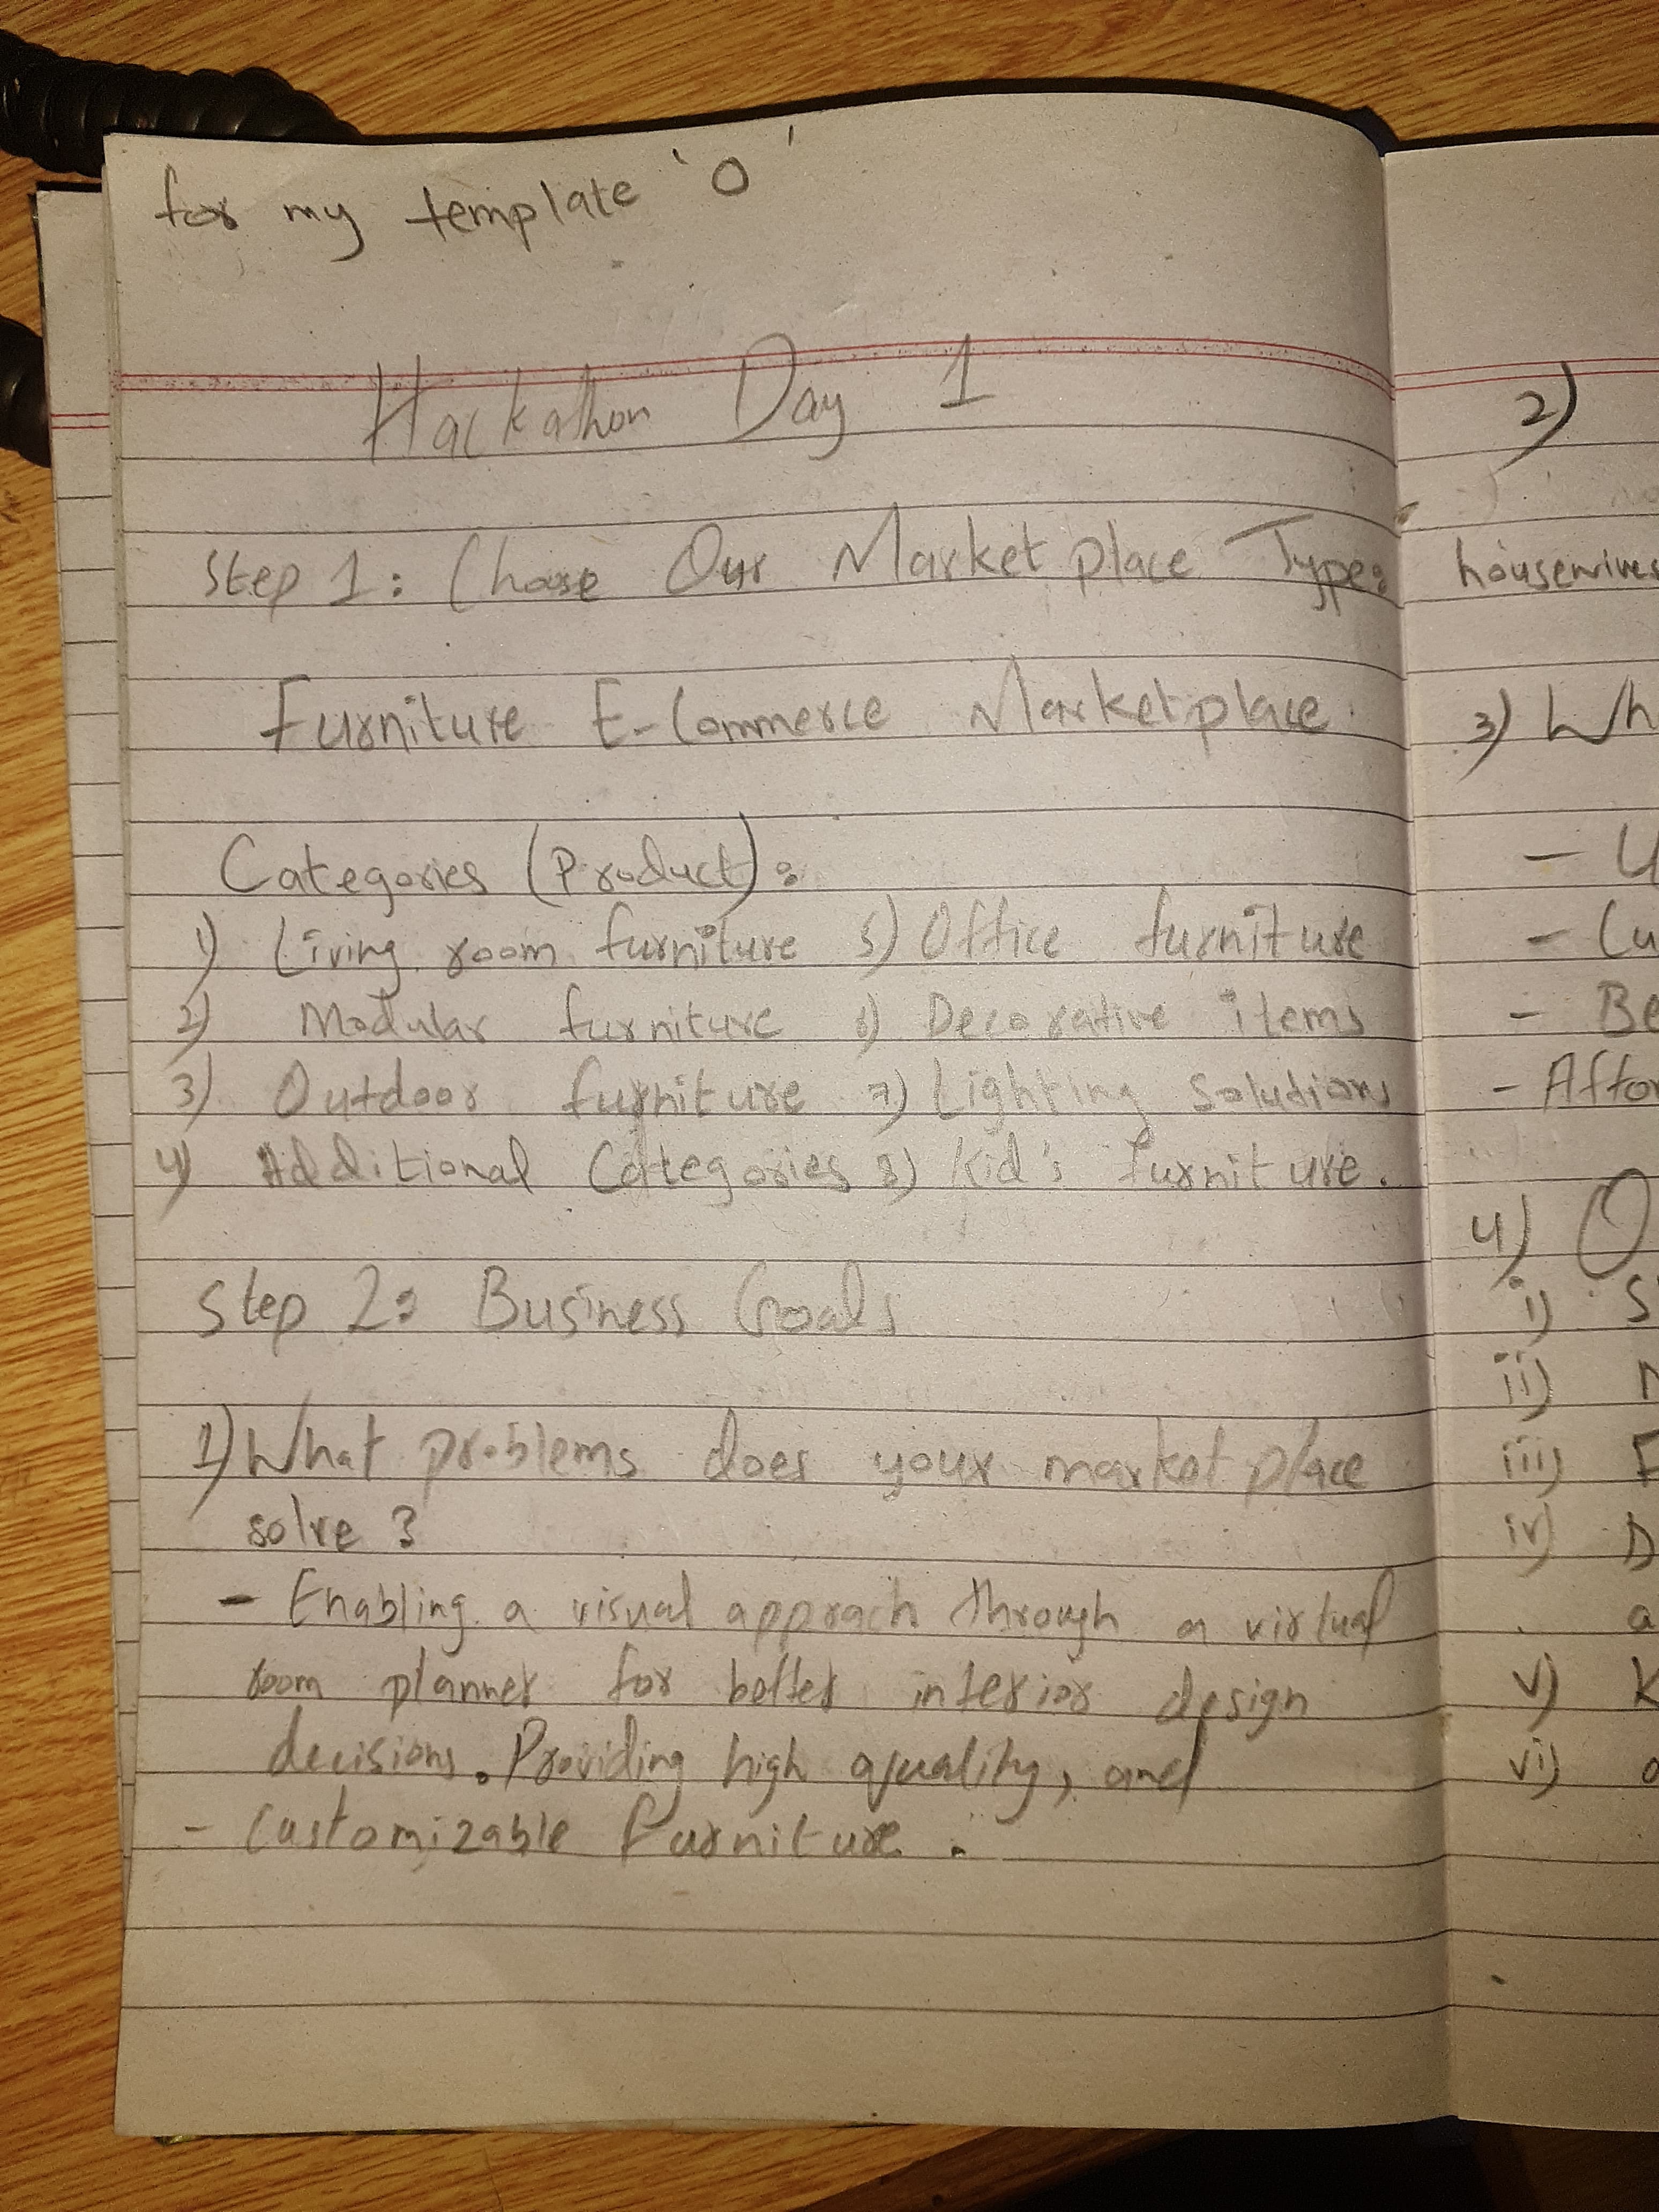 for my template 'O'
Hackathon Day 1
Step 1: Choose Our Market place Type:
Furniture E-Commerce Marketplace.
Categories (Product):
1) Living room furniture 5) Office furniture
2) Modular furniture 6) Decorative items
3) Outdoor furniture 7) Lighting Solutions
4) Additional Categories 8) Kid's furniture.
Step 2: Business Goals
1) What problems does your market place
solve ?
- Enabling a visual apprach through a virtual
room planner for better interior design
decisions. Providing high quality, and
- Customizable furniture.
2)
housewives
3) Wh
- U
- Cu
- Be
- Affor
4) O
i) S
ii)
iii) F
iv) D
a
v) K
vi)